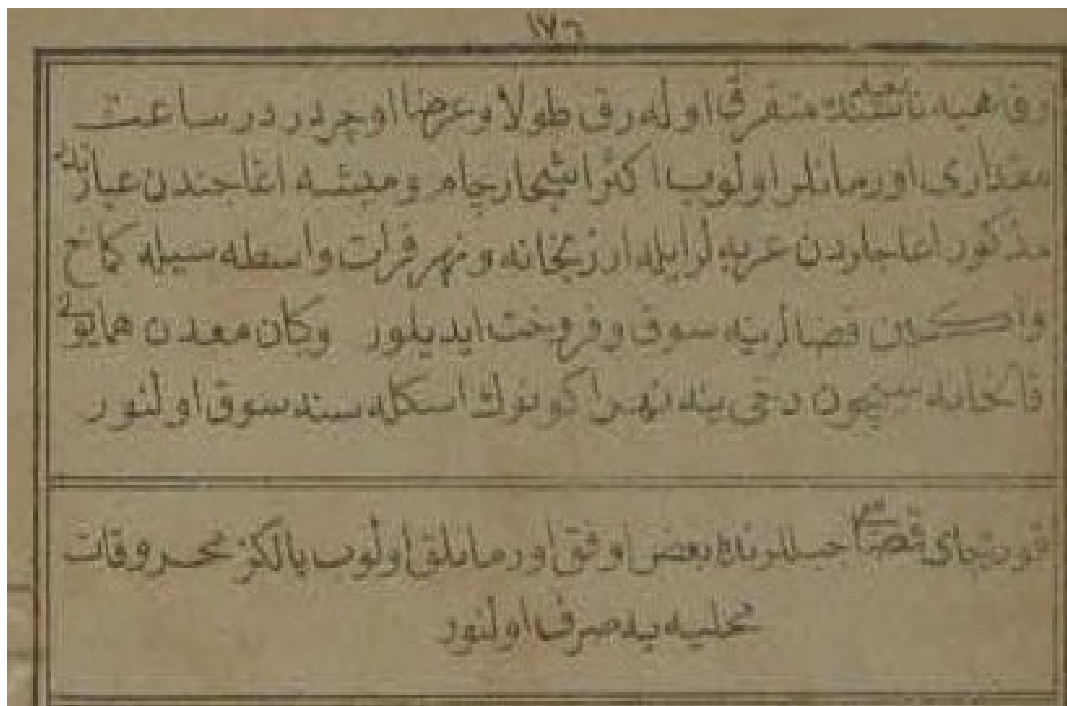 ١٧٦
متفرق اوله رق طولا وعرضا اوچر دردر ساعت
مقداری اورمانلر اولوب اکثر اشجار چام ومیشه اغاجندن عبارتدر
مذکور اغاجلردن عربه لر ایله ارزنجانه ونهر فرات واسطه سیله کماخ
واکین قضالرینه سوق وفروخت ایدیلور وکبان معدن همایونی
قالخانه سیچون دخی ینه نهرا کونوك اسکله سنه سوق اولنور
قوریچای قضاسی جبللرنده بعض اوفق اورمانلق اولوب یالکز محروقات
محلیه یه صرف اولنور